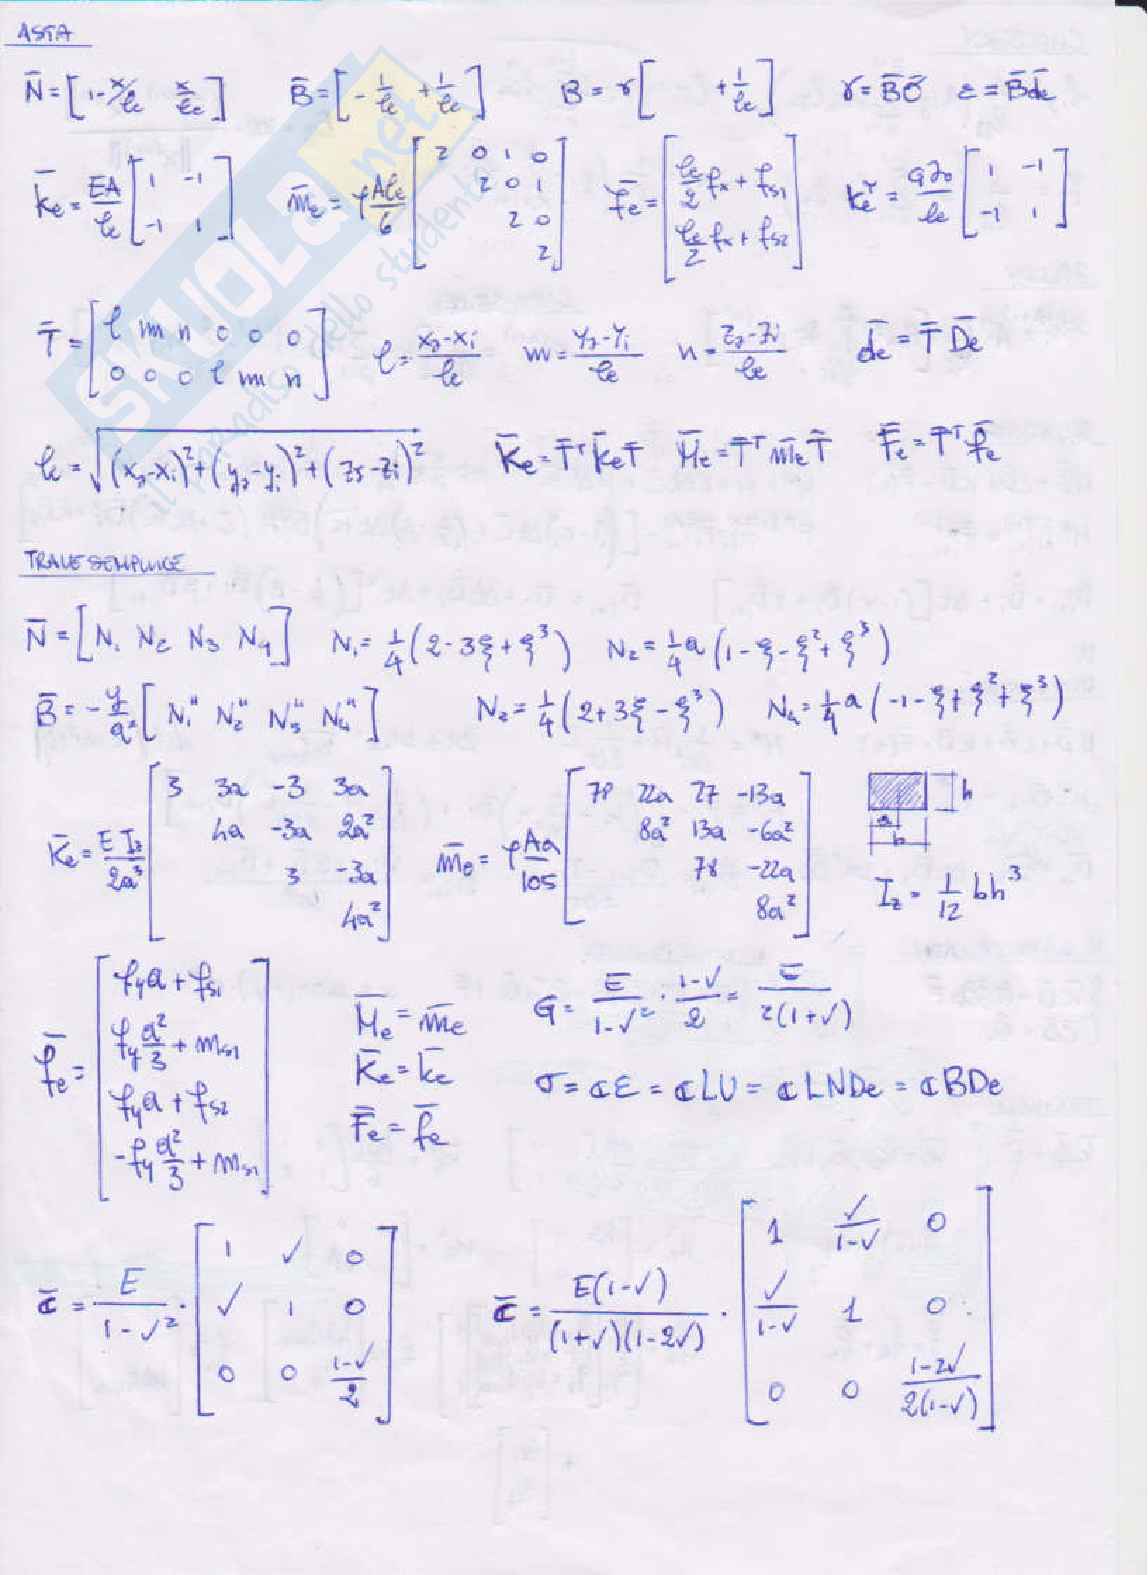 ASTA
N̄ = [1-x/ℓe  x/ℓe]   B̄ = [-1/ℓe  +1/ℓe]   B = r[  +1/ℓe]   γ = B̄ō   ε = B̄d̄e
k̄e = EA/ℓe [1 -1; -1 1]   m̄e = ρAℓe/6 [2 0 1 0; 2 0 1; 2 0; 2]   f̄e = [ℓe/2 fx + fs1; ℓe/2 fx + fs2]   [1 -1; -1 1]
T̄ = [l m n 0 0 0; 0 0 0 l m n]   l = (xJ-xi)/ℓe   m = (yJ-yi)/ℓe   n = (zJ-zi)/ℓe   d̄e = T̄ D̄e
ℓe = √((xJ-xi)²+(yJ-yi)²+(zJ-zi)²)   K̄e = T̄ᵀk̄eT̄   M̄e = T̄ᵀm̄eT̄   F̄e = T̄ᵀf̄e
TRAVE SEMPLICE
N̄ = [N1 N2 N3 N4]   N1 = 1/4(2-3ξ+ξ³)   N2 = 1/4a(1-ξ-ξ²+ξ³)
B̄ = -y/a² [N1" N2" N3" N4"]   N2 = 1/4(2+3ξ-ξ³)   N4 = 1/4a(-1-ξ+ξ²+ξ³)
k̄e = EIz/2a³ [3 3a -3 3a; 4a -3a 2a²; 3 -3a; 4a²]   m̄e = ρAa/105 [78 22a 27 -13a; 8a² 13a -6a²; 78 -22a; 8a²]
h
a
b
Iz = 1/12 bh³
f̄e = [fya + fs1; fy a²/3 + ms1; fya + fs2; -fy a²/3 + ms1]
M̄e = m̄e
K̄e = k̄e
F̄e = f̄e
G = E/(1-ν²) · (1-ν)/2 = E/(2(1+ν))
σ = ℂε = ℂLU = ℂLNDe = ℂBDe
ℂ̄ = E/(1-ν²) · [1 ν 0; ν 1 0; 0 0 (1-ν)/2]   ℂ̄ = E(1-ν)/((1+ν)(1-2ν)) · [1 ν/(1-ν) 0; ν/(1-ν) 1 0; 0 0 (1-2ν)/(2(1-ν))]
SKUOLA.net
il paradiso dello studente